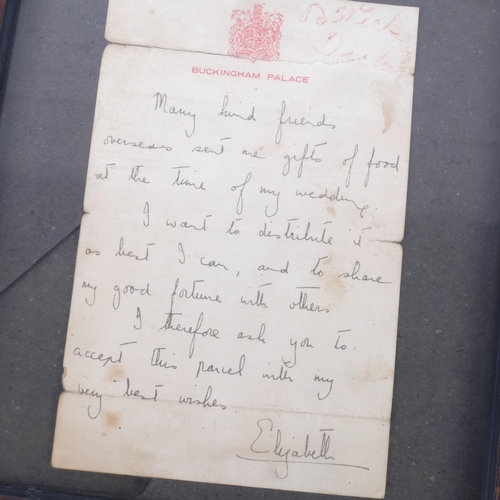 BUCKINGHAM PALACE
Many kind friends
overseas sent me gifts of food
at the time of my wedding.
I want to distribute it
as best I can, and to share
my good fortune with others.
I therefore ask you to
accept this parcel with my
very best wishes.
Elizabeth